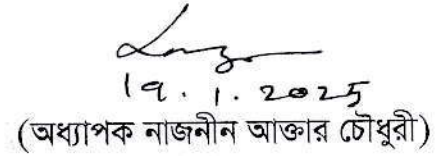 19.1.2025
(অধ্যাপক নাজনীন আক্তার চৌধুরী)